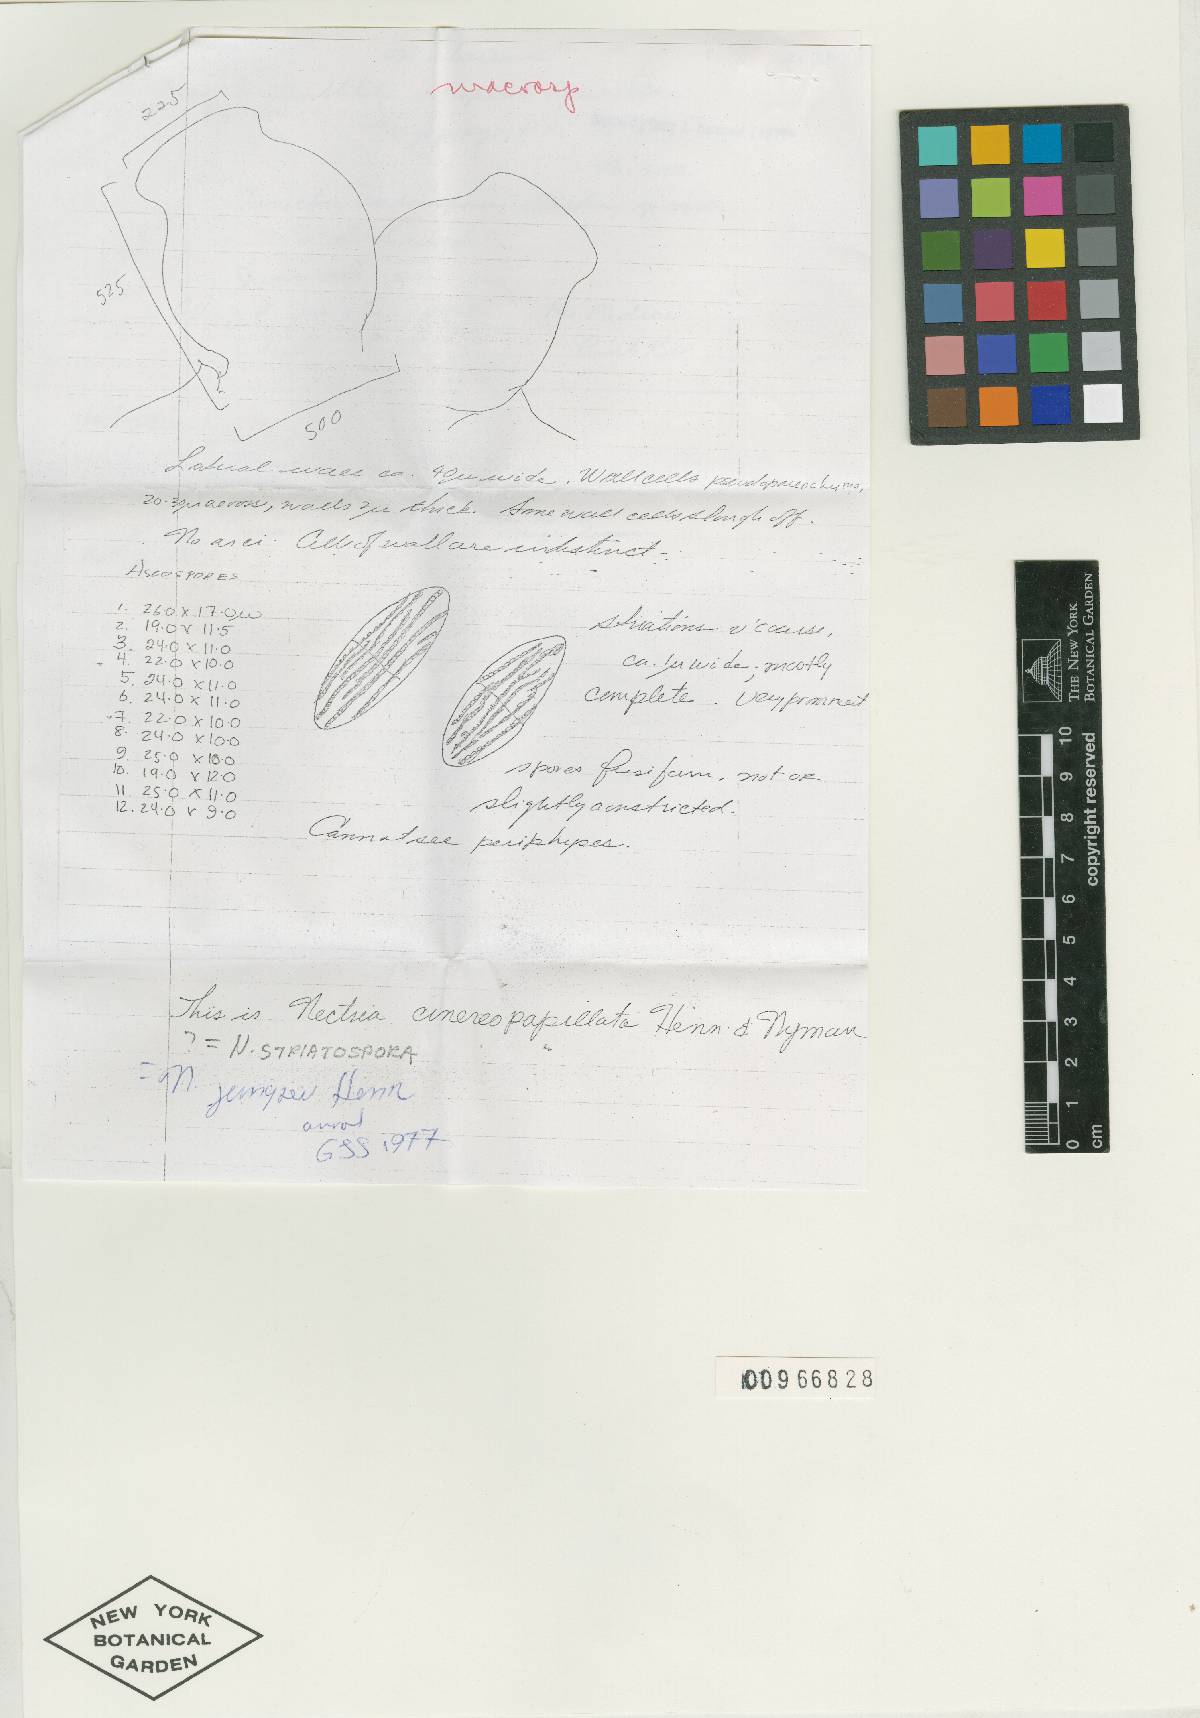 macrosp
225
525
500
Lateral wall ca. 40μ wide. Wall cells pseudoparenchyma,
20-3μ across, walls 2μ thick. Some wall cells slough off.
No asci. Cells of wall are indistinct-
ASCOSPORES
1. 26.0 x 17.0μ
2. 19.0 x 11.5
3. 24.0 x 11.0
4. 22.0 x 10.0
5. 24.0 x 11.0
6. 24.0 x 11.0
7. 22.0 x 10.0
8. 24.0 x 10.0
9. 25.0 x 10.0
10. 19.0 x 12.0
11. 25.0 x 11.0
12. 24.0 x 9.0
striations v. coarse,
ca. 1μ wide, mostly
complete. Very prominent
spores fusiform, not or
slightly constricted.
Cannot see periphyses.
This is Nectria cinereopapillata Henn. & Nyman
? = N. STRIATOSPORA
= N. Henn
GSS 1977
00966828
NEW YORK
BOTANICAL
GARDEN
THE NEW YORK
BOTANICAL GARDEN
copyright reserved
0 1 2 3 4 5 6 7 8 9 10
cm